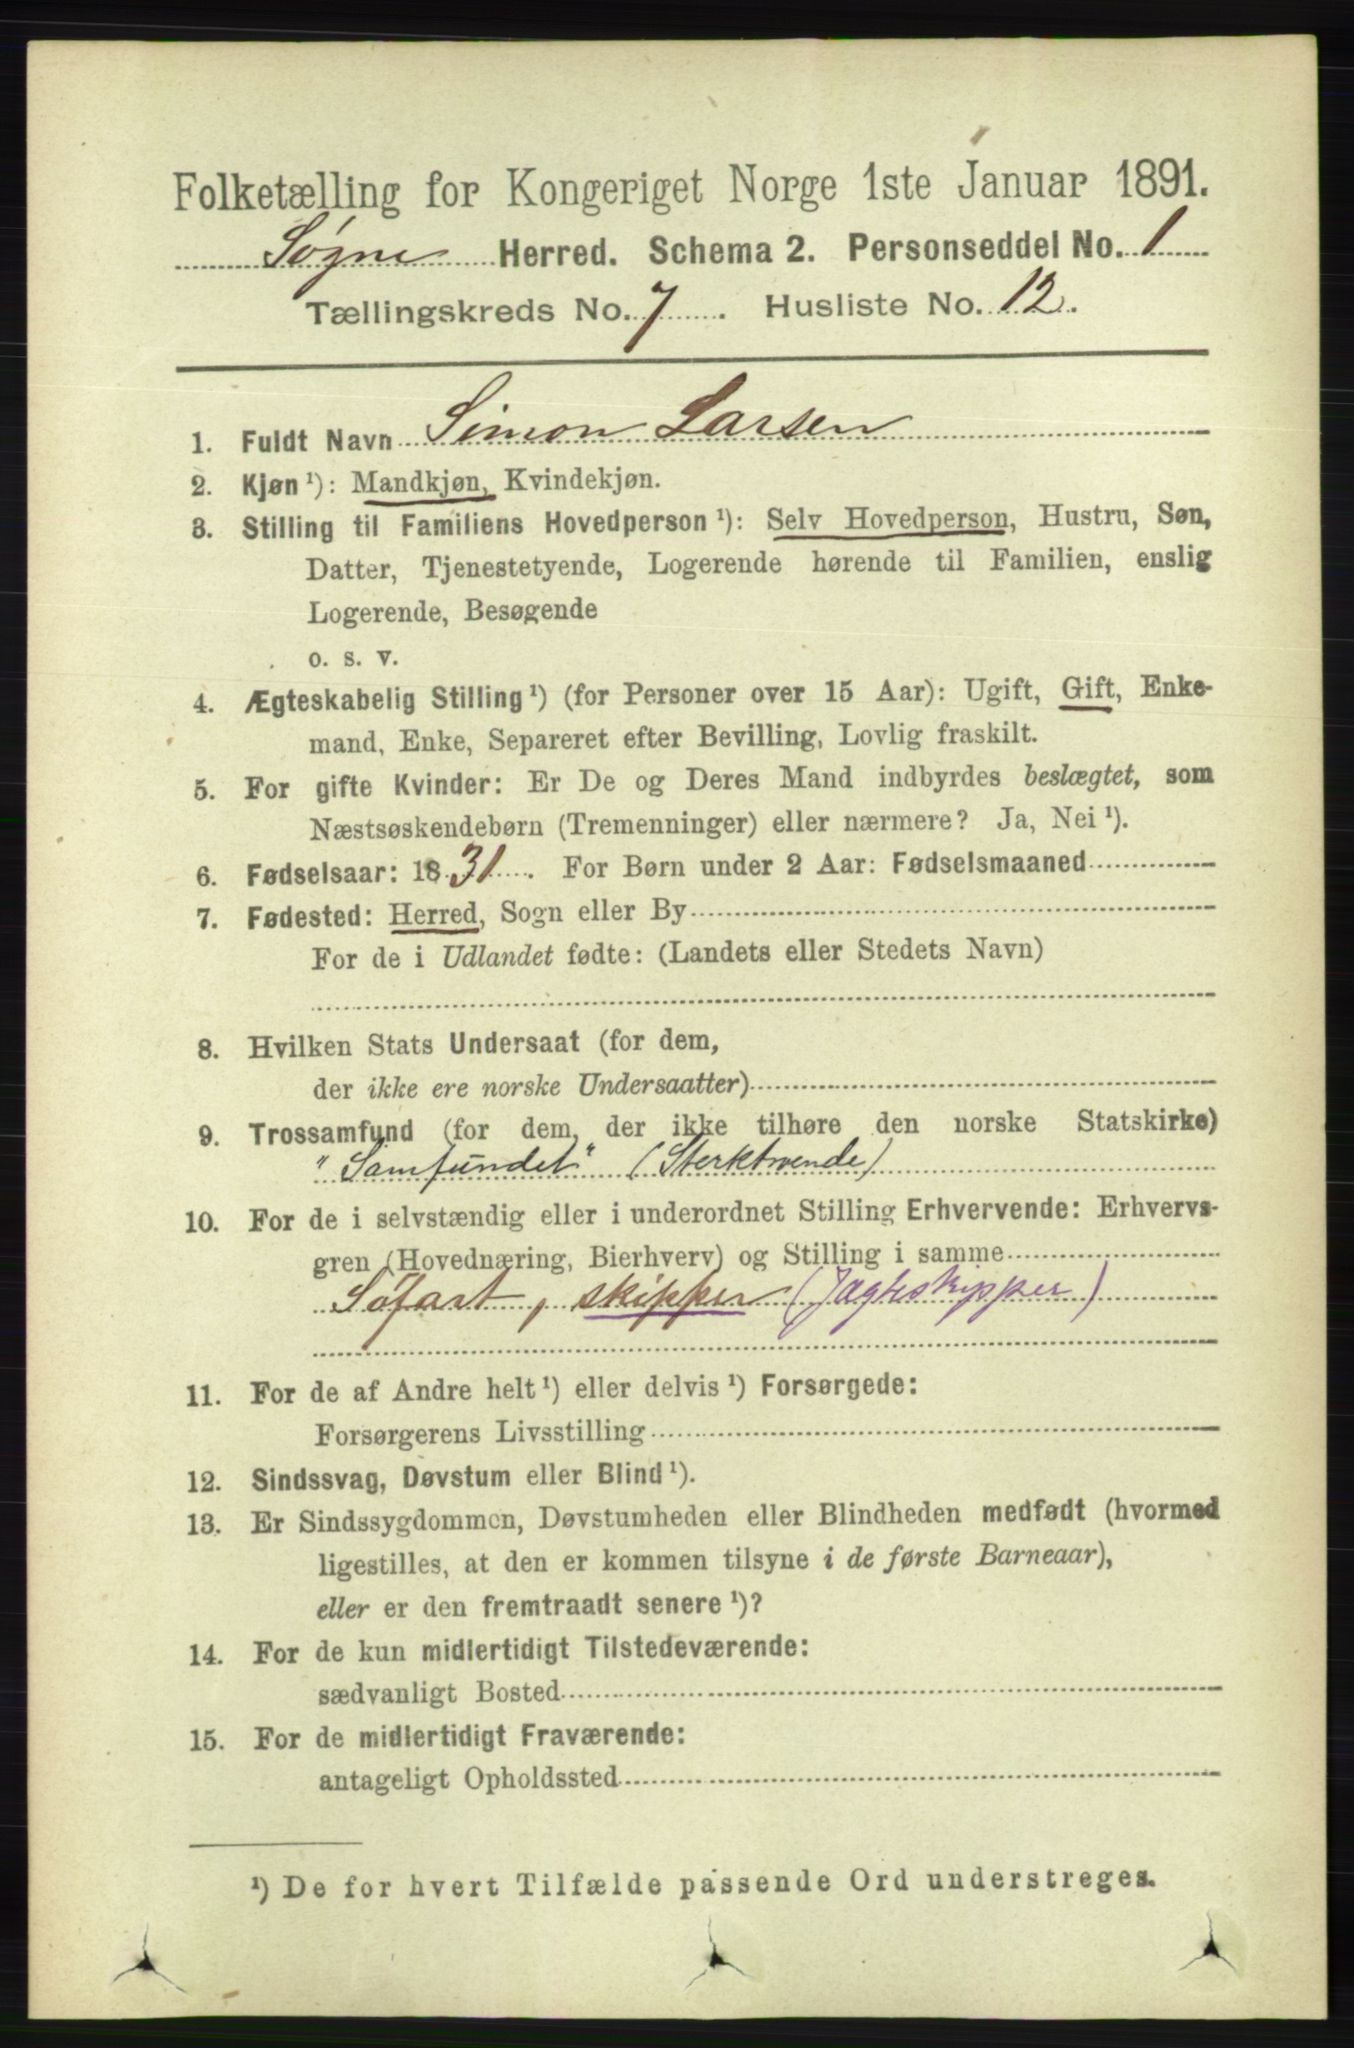 Folketælling for Kongeriget Norge 1ste Januar 1891.
Søgne Herred. Schema 2. Personseddel No. 1
Tællingskreds No. 7. Husliste No. 12.
1. Fuldt Navn Simon Larsen
2. Kjøn ¹): Mandkjøn, Kvindekjøn.
3. Stilling til Familiens Hovedperson ¹): Selv Hovedperson, Hustru, Søn,
Datter, Tjenestetyende, Logerende hørende til Familien, enslig
Logerende, Besøgende
o. s. v.
4. Ægteskabelig Stilling ¹) (for Personer over 15 Aar): Ugift, Gift, Enke-
mand, Enke, Separeret efter Bevilling, Lovlig fraskilt.
5. For gifte Kvinder: Er De og Deres Mand indbyrdes beslægtet, som
Næstsøskendebørn (Tremenninger) eller nærmere? Ja, Nei ¹).
6. Fødselsaar: 1831. For Børn under 2 Aar: Fødselsmaaned
7. Fødested: Herred, Sogn eller By
For de i Udlandet fødte: (Landets eller Stedets Navn)
8. Hvilken Stats Undersaat (for dem,
der ikke ere norske Undersaatter)
9. Trossamfund (for dem, der ikke tilhøre den norske Statskirke)
"Samfundet" (Sterktroende)
10. For de i selvstændig eller i underordnet Stilling Erhvervende: Erhvervs-
gren (Hovednæring, Bierhverv) og Stilling i samme
Søfart, skipper (Jagteskipper)
11. For de af Andre helt ¹) eller delvis ¹) Forsørgede:
Forsørgerens Livsstilling
12. Sindssvag, Døvstum eller Blind ¹).
13. Er Sindssygdommen, Døvstumheden eller Blindheden medfødt (hvormed
ligestilles, at den er kommen tilsyne i de første Barneaar),
eller er den fremtraadt senere ¹)?
14. For de kun midlertidigt Tilstedeværende:
sædvanligt Bosted
15. For de midlertidigt Fraværende:
antageligt Opholdssted
¹) De for hvert Tilfælde passende Ord understreges.